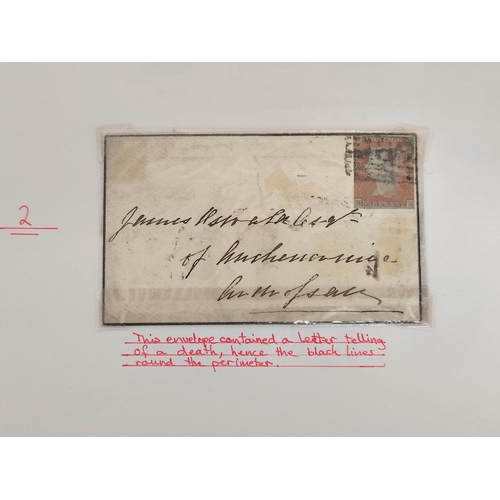 2
ONE PENNY
James Oswald Esqr
of Auchencruive
Ardrossan
This envelope contained a letter telling
of a death, hence the black lines
round the perimeter.